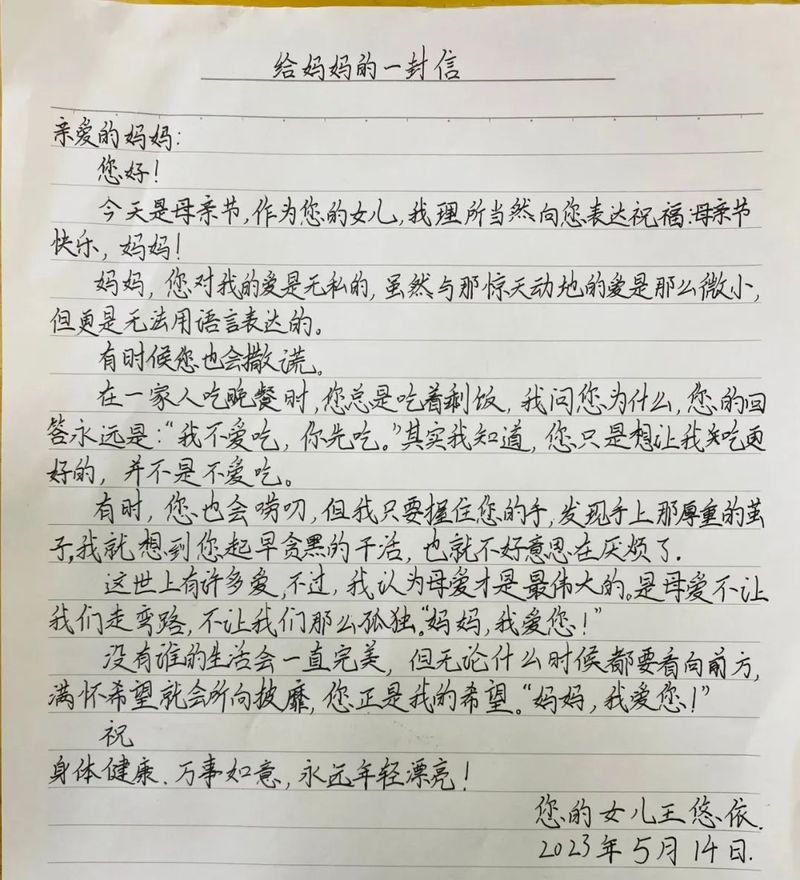 给妈妈的一封信
亲爱的妈妈:
您好!
今天是母亲节,作为您的女儿,我理所当然向您表达祝福:母亲节
快乐,妈妈!
妈妈,您对我的爱是无私的,虽然与那惊天动地的爱是那么微小,
但更是无法用语言表达的。
有时候您也会撒谎。
在一家人吃晚餐时,您总是吃着剩饭,我问您为什么,您的回
答永远是:“我不爱吃,你先吃。”其实我知道,您只是想让我吃更
好的,并不是不爱吃。
有时,您也会唠叨,但我只要握住您的手,发现手上那厚重的茧
子,我就想到您起早贪黑的干活,也就不好意思在厌烦了.
这世上有许多爱,不过,我认为母爱才是最伟大的。是母爱不让
我们走弯路,不让我们那么孤独。“妈妈,我爱您!”
没有谁的生活会一直完美,但无论什么时候都要看向前方,
满怀希望就会所向披靡,您正是我的希望。“妈妈,我爱您!”
祝
身体健康、万事如意,永远年轻漂亮!
您的女儿王悠依.
2023年5月14日.